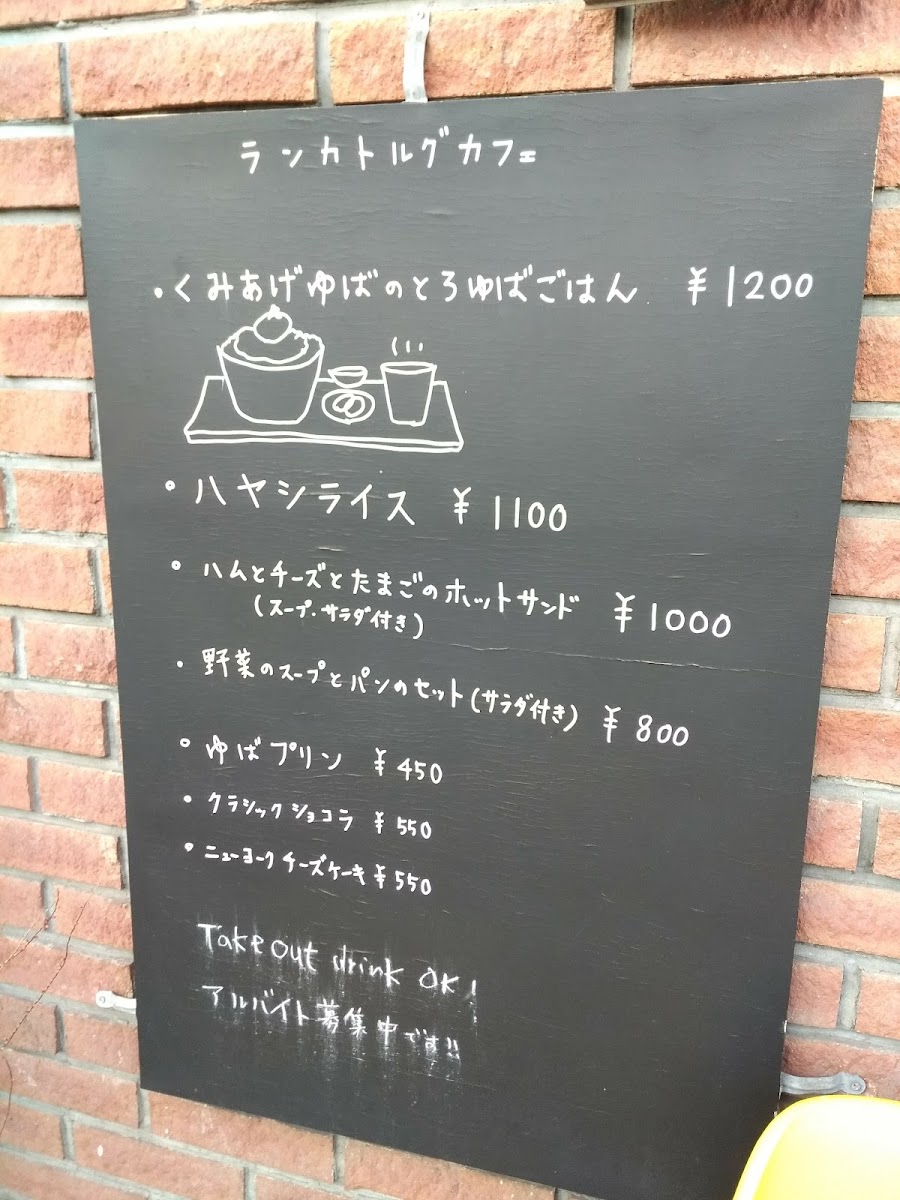 ランカトルグカフェ
・くみあげゆばのとろゆばごはん ¥1200
・ハヤシライス ¥1100
・ハムとチーズとたまごのホットサンド ¥1000
(スープ・サラダ付き)
・野菜のスープとパンのセット(サラダ付き) ¥800
・ゆばプリン ¥450
・クラシックショコラ ¥550
・ニューヨークチーズケーキ ¥550
Take out drink OK!
アルバイト募集中です!!